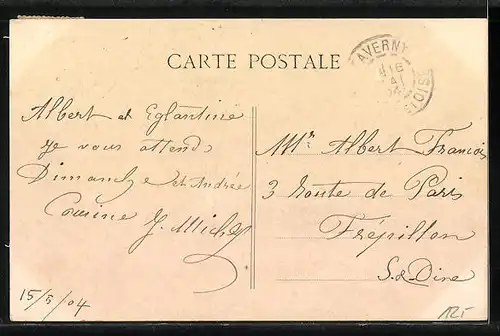 CARTE POSTALE
TAVERNY
16
MAI
OISE
Albert et Eglantine
je vous attend
Dimanche et André
Cousine J. Michel
15/5/04
Mr Albert Francois
3 route de Paris
Frépillon
S. & Oise
12.-